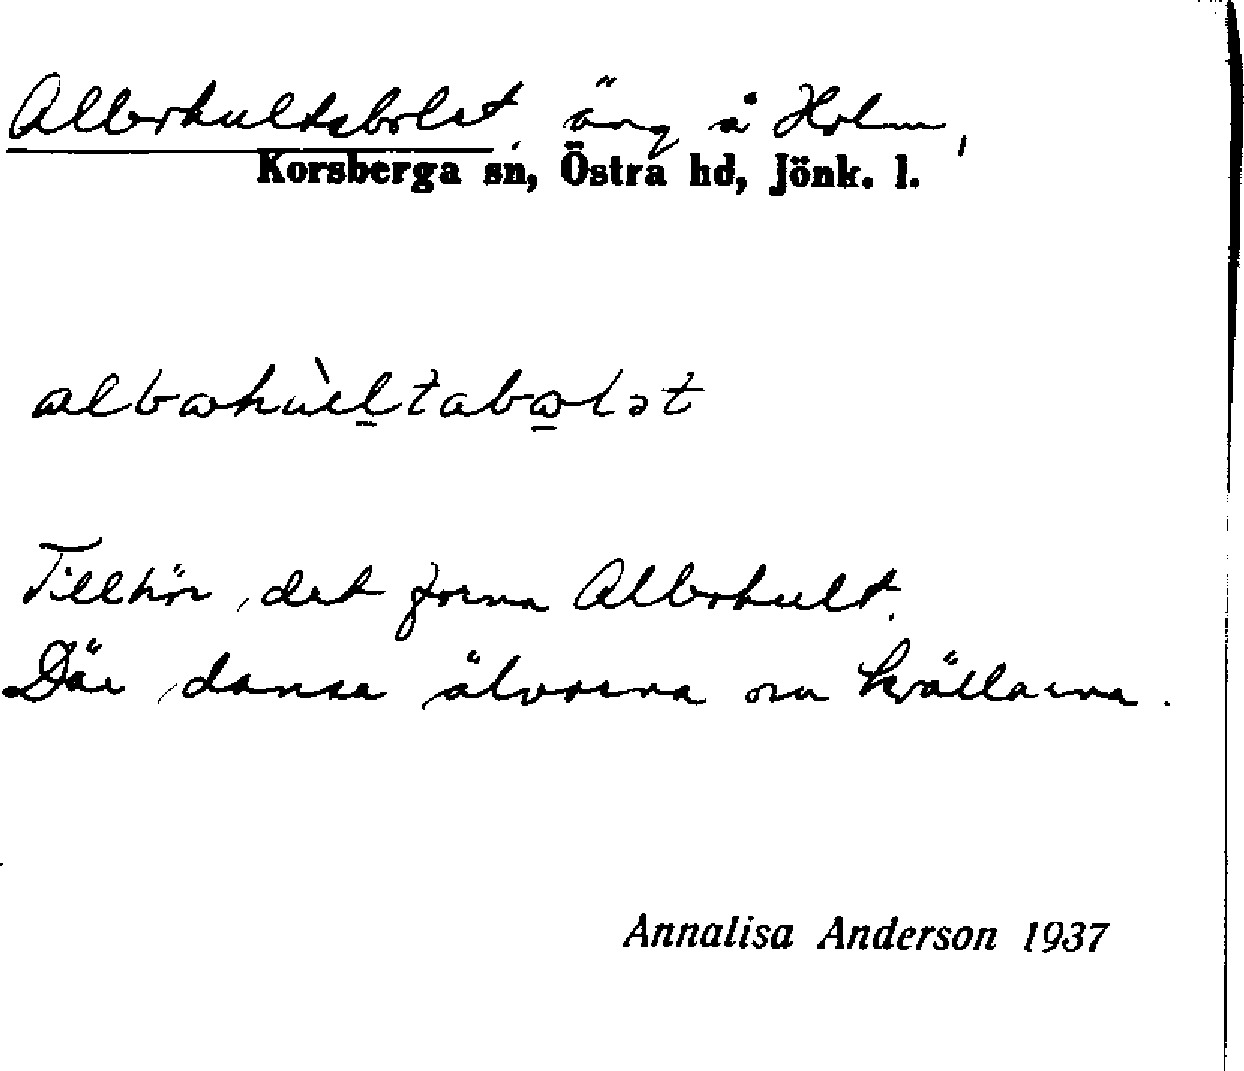 Alborhultabolet, äng å Holm,
Korsberga sn, Östra hd, Jönk. l.
Tillhör det forna Alborhult.
Där dansa älvorna om kvällarna.
Annalisa Anderson 1937